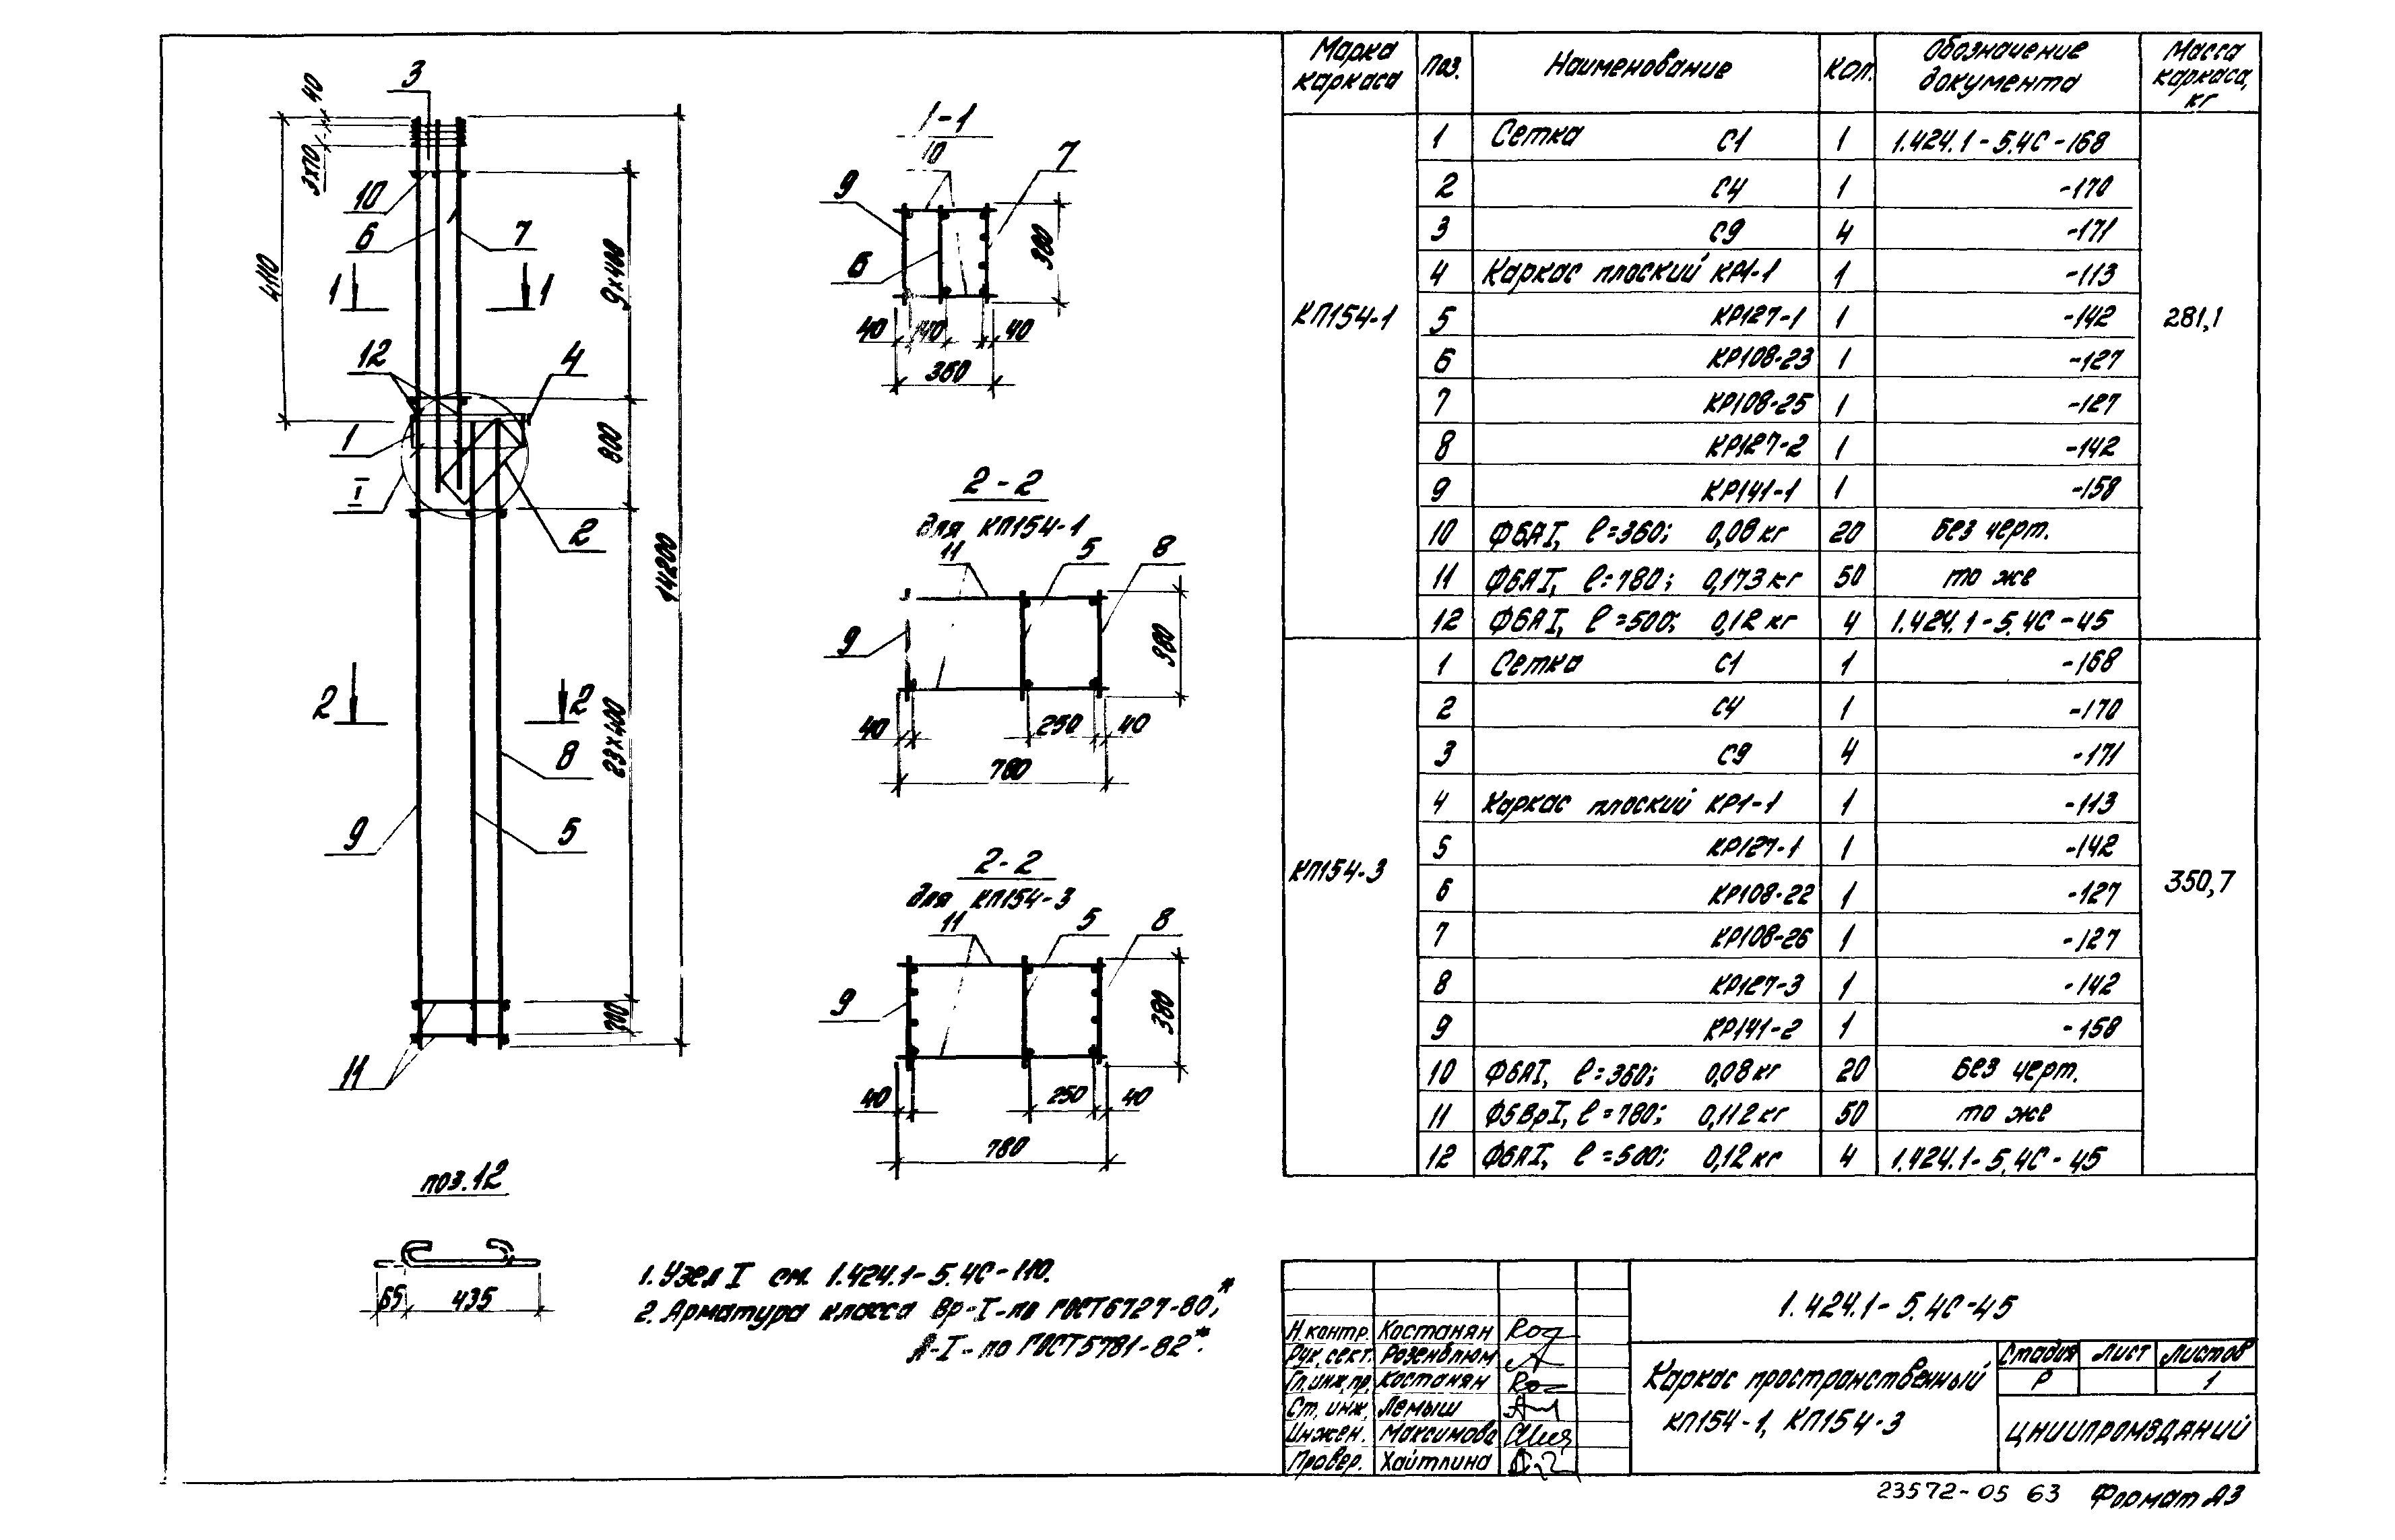 3
40
3х70
10
6
7
4110
1
1
9х400
12
4
1
800
I
2
14200
2
2
23х400
8
9
5
200
11
поз.12
65
435
1-1
10
7
9
6
380
40
140
40
360
2-2
для КП154-1
11
5
8
9
380
40
250
40
780
2-2
для КП154-3
11
5
8
9
380
40
250
40
780
1. Узел I см. 1.424.1-5.4С-110.
2. Арматура класса Вр-I-по ГОСТ6727-80,*
А-I-по ГОСТ5781-82*.
Марка каркаса Поз. Наименование Кол. Обозначение документа Масса каркаса, кг
КП154-1 281,1
1 Сетка С1 1 1.424.1-5.4С-168
2 С4 1 -170
3 С9 4 -171
4 Каркас плоский КР1-1 1 -113
5 КР127-1 1 -142
6 КР108-23 1 -127
7 КР108-25 1 -127
8 КР127-2 1 -142
9 КР141-1 1 -158
10 Ф6АI, ℓ=360; 0,08кг 20 Без черт.
11 Ф6АI, ℓ=780; 0,173кг 50 то же
12 Ф6АI, ℓ=500; 0,12кг 4 1.424.1-5.4С-45
КП154-3 350,7
1 Сетка С1 1 -168
2 С4 1 -170
3 С9 4 -171
4 Каркас плоский КР1-1 1 -113
5 КР127-1 1 -142
6 КР108-22 1 -127
7 КР108-26 1 -127
8 КР127-3 1 -142
9 КР141-2 1 -158
10 Ф6АI, ℓ=360; 0,08кг 20 Без черт.
11 Ф5ВрI, ℓ=780; 0,112кг 50 то же
12 Ф6АI, ℓ=500; 0,12кг 4 1.424.1-5.4С-45
Н.контр. Костанян
Рук.сект. Розенблюм
Гл.инж.пр. Костанян
Ст. инж. Лемыш
Инжен. Максимова
Провер. Хайтлина
1.424.1-5.4С-45
Каркас пространственный
КП154-1, КП154-3
Стадия Лист Листов
Р 1
ЦНИИПРОМЗДАНИЙ
23572-05 63 Формат А3